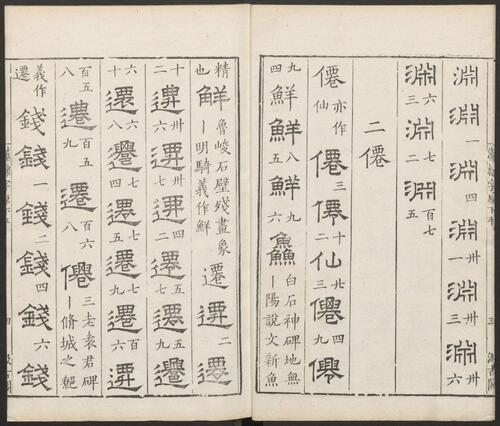 淵 淵一 淵四 淵卅 淵卅三 淵卅六
淵六三 淵七二 淵百七五
二僊
僊 亦作仙 僊三 僊十二 仙廿三 僊九四 僊
九四 鮮 鮮八五 鮮九六 鱻 白石神碑地無｜陽説文新魚
精也 鮮 魯峻石壁殘畫象｜明騎義作鮮 遷 遷二 遷
十二 遷卅六 遷卅七 遷四二 遷五七 遷五九 遷
六十 遷六八 遷七四 遷七五 遷七九 遷百六 遷
百五八 遷百五九 遷百六八 僊 三老袁君碑｜脩城之
義作遷 錢 錢一 錢二 錢四 錢六 錢